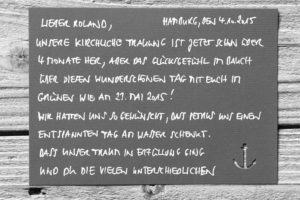 LIEBER ROLAND, HAMBURG, DEN 4.10.2015
UNSERE KIRCHLICHE TRAUUNG IST JETZT SCHON ÜBER
4 MONATE HER, ABER DAS GLÜCKSGEFÜHL IM BAUCH
ÜBER DIESEN WUNDERSCHÖNEN TAG MIT EUCH IM
GRÜNEN WIE AM 29. MAI 2015!
WIR HATTEN UNS SO GEWÜNSCHT, DASS PETRUS UNS EINEN
ENTSPANNTEN TAG AM WASSER SCHENKT.
DASS UNSER TRAUM IN ERFÜLLUNG GING
UND DU DIE VIELEN UNTERSCHIEDLICHEN